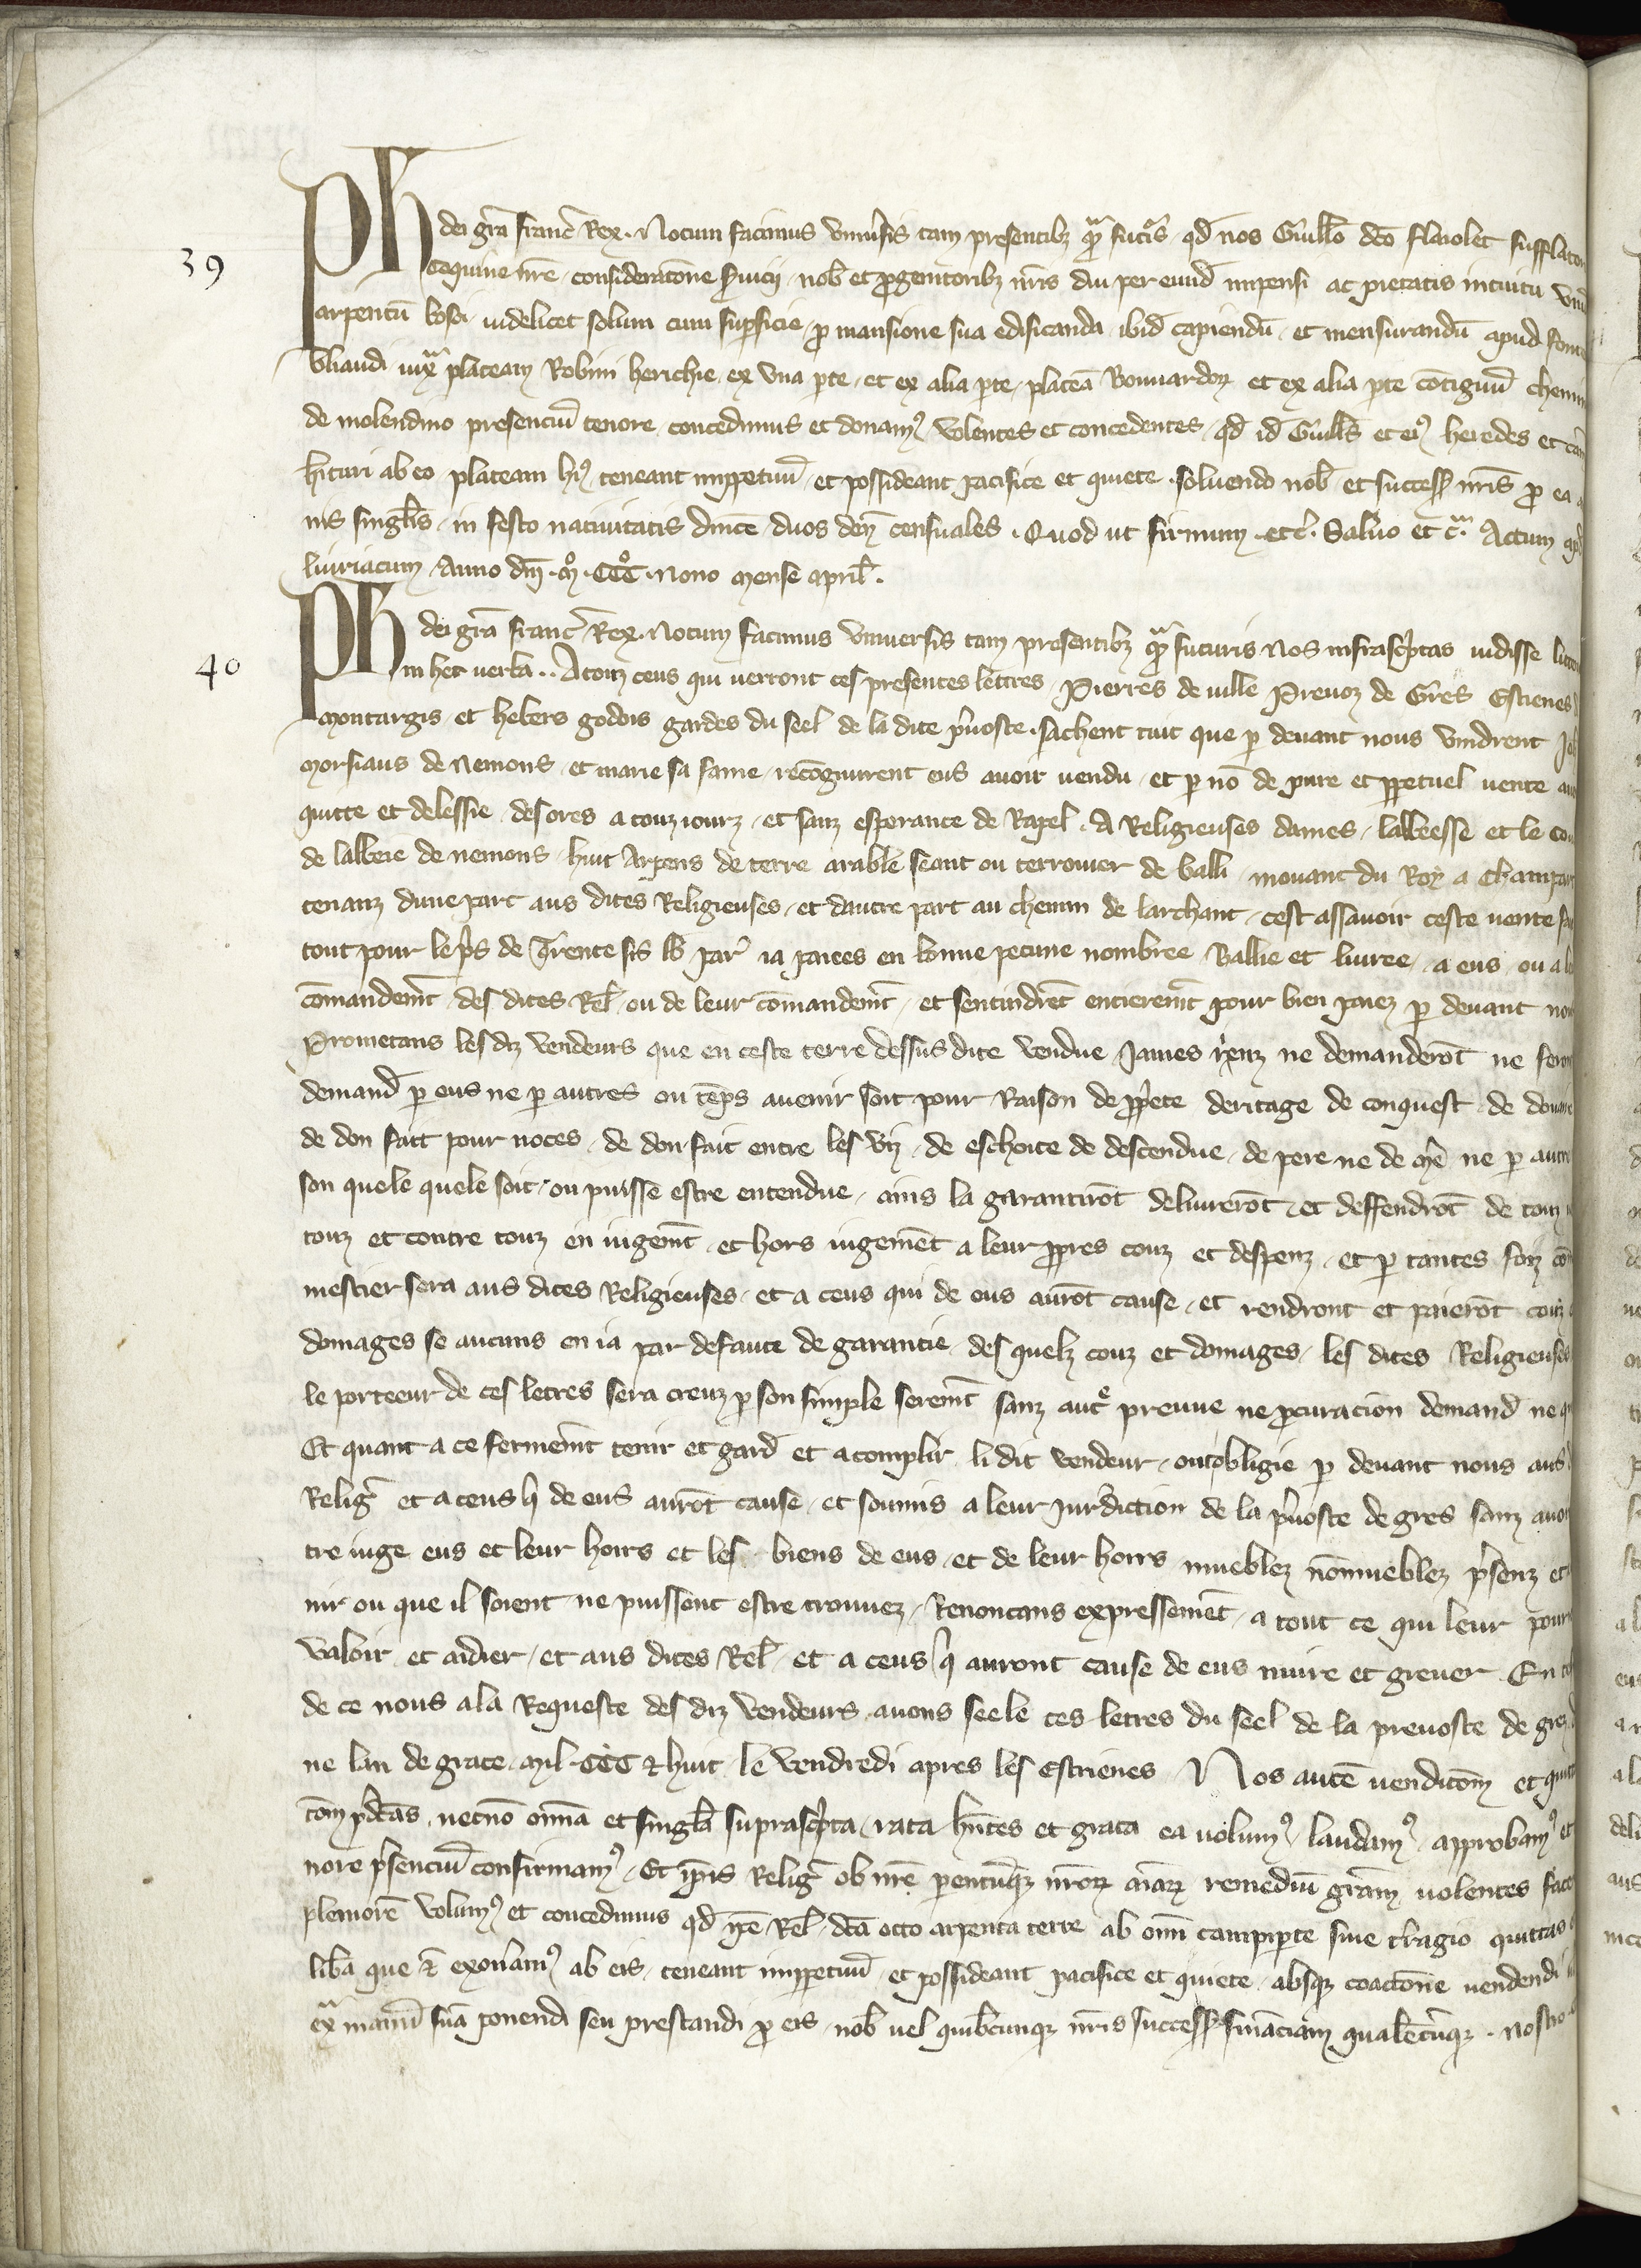 39
Ph dei gr̄a franc̄ Rex. Notum facimus vniu̓sis tam presentibȝ qᵃm futᵘris qd̄ nos Guill̄o dc̄o flaiolet sufflator
coquine nr̄e consideratōne s̓uicij nob̄ et ꝓgenitoribȝ nr̄is diu per eund̄ impensi ac pietatis intuitu vnū
arpentū bosci uidelicet solum cum suꝑficie ꝓ mansione sua edificanda ibid̄ capiendū et mensurandū apud fonte
bliaudi iuxᵃ plateam Robini herichie ex vna ꝑte et ex alia ꝑte plateā Bonuardoꝝ et ex alia ꝑte cōtiguū chemin
de molendino presenciū tenore concedimus et donamꝰ volentes et concedentes qd̄ id̄ Guill̄s et eiꝰ heredes et cām
hituri ab eo plateam hꝰ teneant imꝑpetuū et possideant pacifice et quiete soluendo nob̄ et success̄ nr̄is ꝓ ea a
nis singl̄is in festo natiuitatis dn̄ice duos den̄ censuales. Quod ut firmum etc̄. Saluo et cᵃ. Actum apd̄
liuriacum Anno dn̄i .mᵒ. CCCᵒ. nono mense april̄.
40
Ph dei gr̄a franc̄ Rex. Notum facimus vniuersis tam presentibȝ qᵃm futuris Nos infrasc̓ptas uidisse litter
in hec verba.. A touz ceus qui uerront ces presentes lettres Pierres de uille Preuoz de Gres Estienes d
montargis et hebers godois gardes du seel de la dite p̓uoste. sachent tuit que ꝑ deuant nous vindrent Jeh
morsiaus de Nemous et marie sa fame recōgnurent eus auoir uendu et ꝑ nō de pure et ꝑpetuel uente auo
quitte et delessie desores a touz iourz et sanz esperance de Rapel. A Religieuses dames labbeesse et le cou
de labbeie de nemous huit Arpens de terre arable seant ou terrouer de balli mouant du Roy a Champar
tenanz dune part aus dites Religieuses et dautre part au chemin de larchant cest assauoir ceste uente fai
tout pour le p̓s de Trente sis lb̄ par̄ ia paiees en bonne pecune nombree Ballie et liuree a eus ou a le
cōmandem̄t des dites Rel̄ ou de leur cōmandem̄t et sentindrēt entierem̄t pour bien paiez ꝑ deuant nou
Prometans les diz vendeurs que en ceste terre dessus dite vendue James rienz ne demanderōt ne feron
demand̄ ꝑ eus ne ꝑ autres ou tēps auenir soit pour Raison de ꝓp̓ete deritage de conquest de douaire
de don fait pour noces de don fait entre les vis de eschoite de descendue de pere ne de me̓ ne ꝑ autre
son quele quele soit ou puisse estre entendue ains la garantirōt deliurerōt et deffendrōt de touz
touz et contre touz en iugem̄t et hors iugemēt a leur ꝓpres couz et despenz et ꝑ tantes foiz cō
mestier sera aus dites Religieuses et a ceus qui de eus aurōt cause et rendront et paierōt couz
domages se aucuns en ia par defaute de garantie des quelz couz et domages les dites Religieuses
le porteeur de ces letres sera creuz ꝑ son simple serem̄t sanz autᵉ preuue ne ꝓcuracion demand̄ ne q
Et quant a ce fermem̄t tenir et gard̄ et acomplir li dit vendeur ont obligie ꝑ deuant nous aus d
Relig̓ et a ceus q̄ de eus aurōt cause et soumis a leur Jur̓diction de la p̓uoste de gres sanz auo
tre iuge eus et leur hoirs et les biens de eus et de leur hoirs mueblez nōmueblez p̓senz et
nir ou que il soient ne puissent estre trouuez Renoncans expressemēt a tout ce qui leur pour
valoir et aidier et aus dites Rel̄ et a ceus q̄ auront cause de eus nuire et greuer En tes
de ce nous a la Requeste des diz vendeurs auons seele ces letres du seel de la preuoste de gres
ne lan de grace mil CCC & huit le vendredi apres les estrienes Nos autē uenditōm et quit
tōm p̓dc̄as necnō om̄ia et singl̄a suprasc̓pta rata hn̄tes et grata ea uolumꝰ laudamꝰ approbamꝰ et
nore p̓senciū confirmamꝰ. Et ip̄is Relig̓ ob nr̄e ꝑentūqȝ nr̄oꝝ aīaꝝ remediū gr̄am uolentes face
pleniorē volumꝰ et concedimus qd̄ ip̄e Rel̄ dc̄a octo arpenta terre ab om̄i campiꝑte siue t̓ragio quittas
lib̄a que & exon̓amꝰ ab eis teneant imꝑpetuū et possideant pacifice et quiete absqȝ coactōne uendendi
exᵃ manū suā ponendi seu prestandi ꝓ eis nob̄ uel quibcunqȝ nr̄is success̄ finācīam qualēcūqȝ . nostro